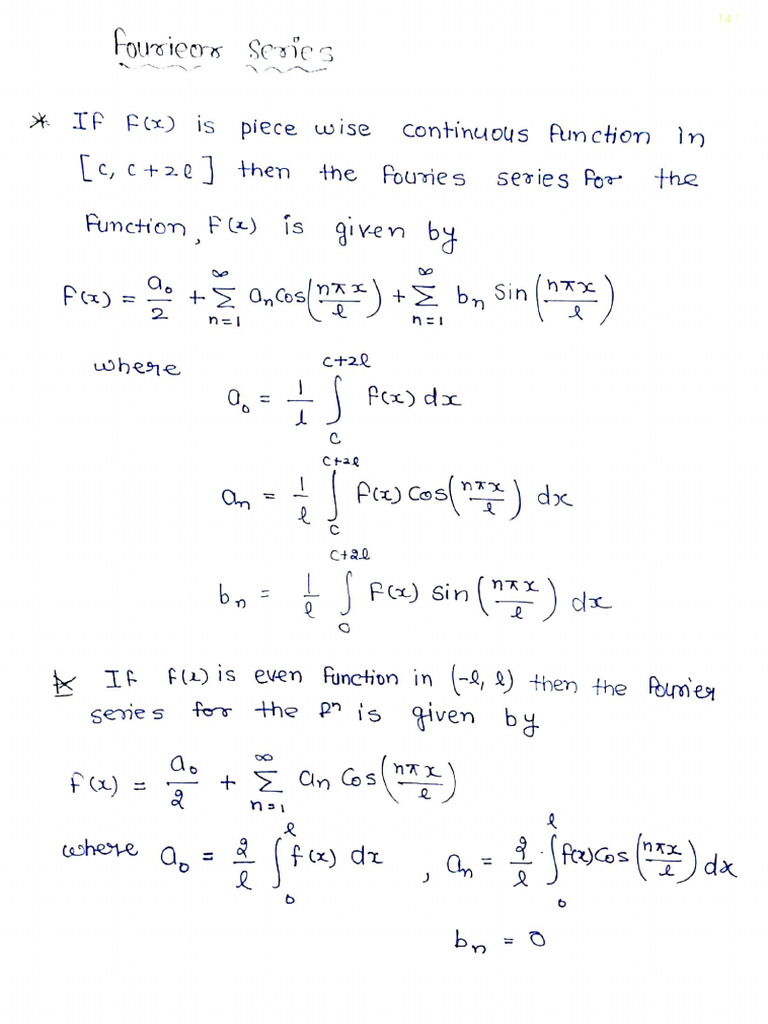 14
Fourieor Series
* If f(x) is piece wise continuous function in
[c, c+2l] then the fouries series for the
function, f(x) is given by
f(x) = a₀/2 + ∞ Σ n=1 aₙ cos(nπx/l) + ∞ Σ n=1 bₙ sin(nπx/l)
where
a₀ = 1/l ∫_c^{c+2l} f(x) dx
aₙ = 1/l ∫_c^{c+2l} f(x) cos(nπx/l) dx
bₙ = 1/l ∫_0^{c+2l} f(x) sin(nπx/l) dx
* If f(x) is even function in (-l, l) then the Fourier
series for the fⁿ is given by
f(x) = a₀/2 + ∞ Σ n=1 aₙ cos(nπx/l)
where a₀ = 2/l ∫_0^l f(x) dx , aₙ = 2/l ∫_0^l f(x) cos(nπx/l) dx
bₙ = 0